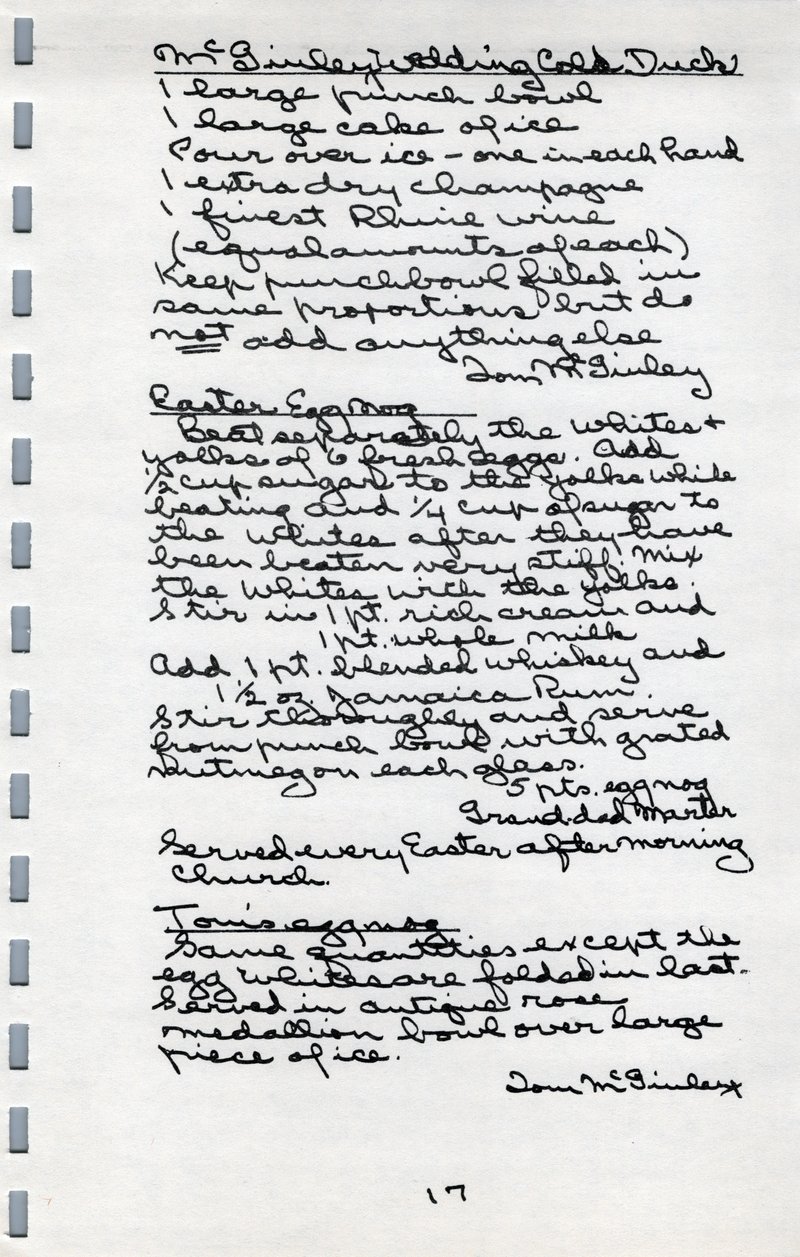 McGinley Wedding Cold Duck
1 large punch bowl
1 large cake of ice
Pour over ice - one in each hand
1 extra dry champagne
1 finest Rhine wine
(equal amounts of each)
Keep punchbowl filled in
same proportions but do
not add anything else
Tom McGinley
Easter Egg nog
Beat separately the whites +
yolks of 6 fresh eggs. Add
1/2 cup sugar to the yolks while
beating and 1/4 cup of sugar to
the whites after they have
been beaten very stiff. Mix
the whites with the yolks.
Stir in 1 pt. rich cream and
1 pt. whole milk
Add 1 pt. blended whiskey and
1 1/2 oz. Jamaica Rum.
Stir thoroughly and serve
from punch bowl with grated
Nutmeg on each glass.
5 pts. eggnog
Grand-dad Marter
Served every Easter after morning
Church.
Tom's eggnog
Same quantities except the
egg whites are folded in last.
Served in antique rose
medallion bowl over large
piece of ice.
Tom McGinley
17